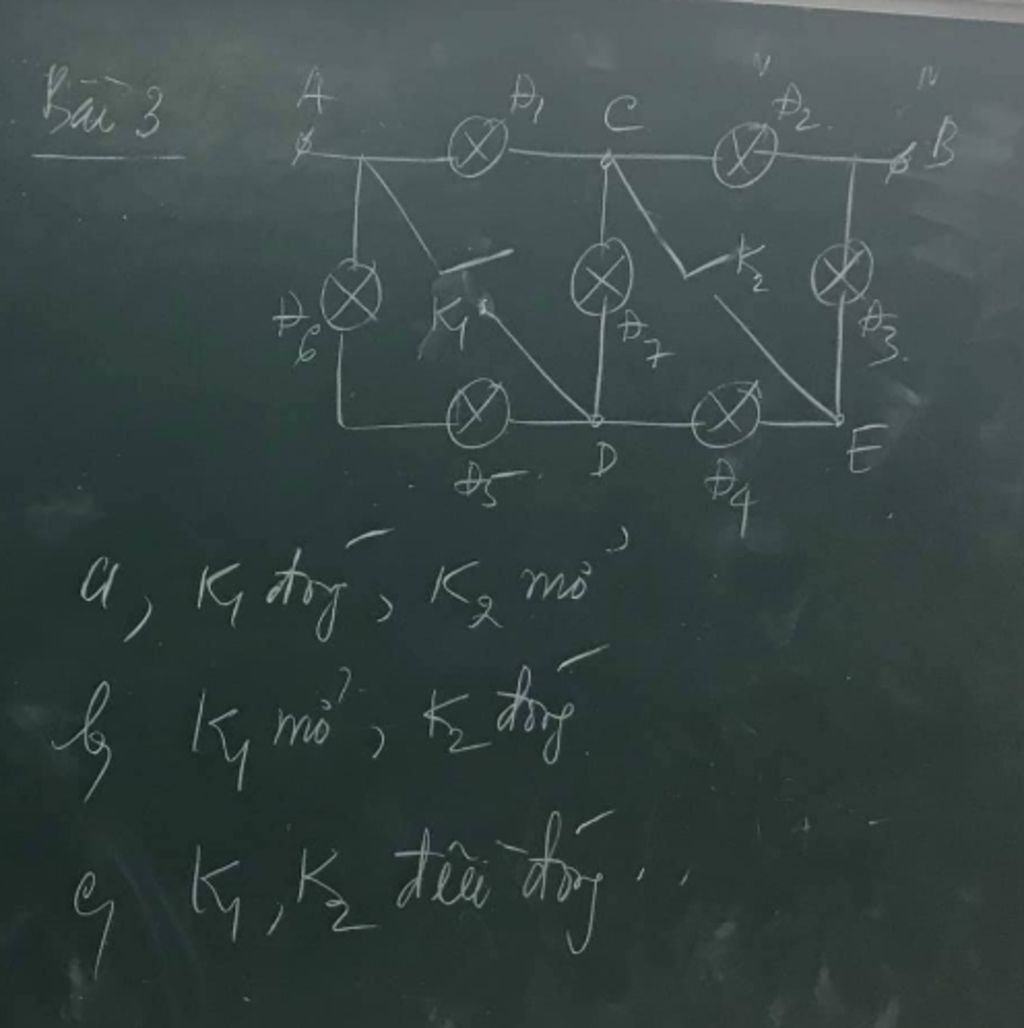 Bài 3
A Đ1 C Đ2 B
Đ6 K1 Đ7 K2 Đ3
Đ5 D Đ4 E
a, K1 đóng, K2 mở
b, K1 mở, K2 đóng.
c, K1, K2 đều đóng...